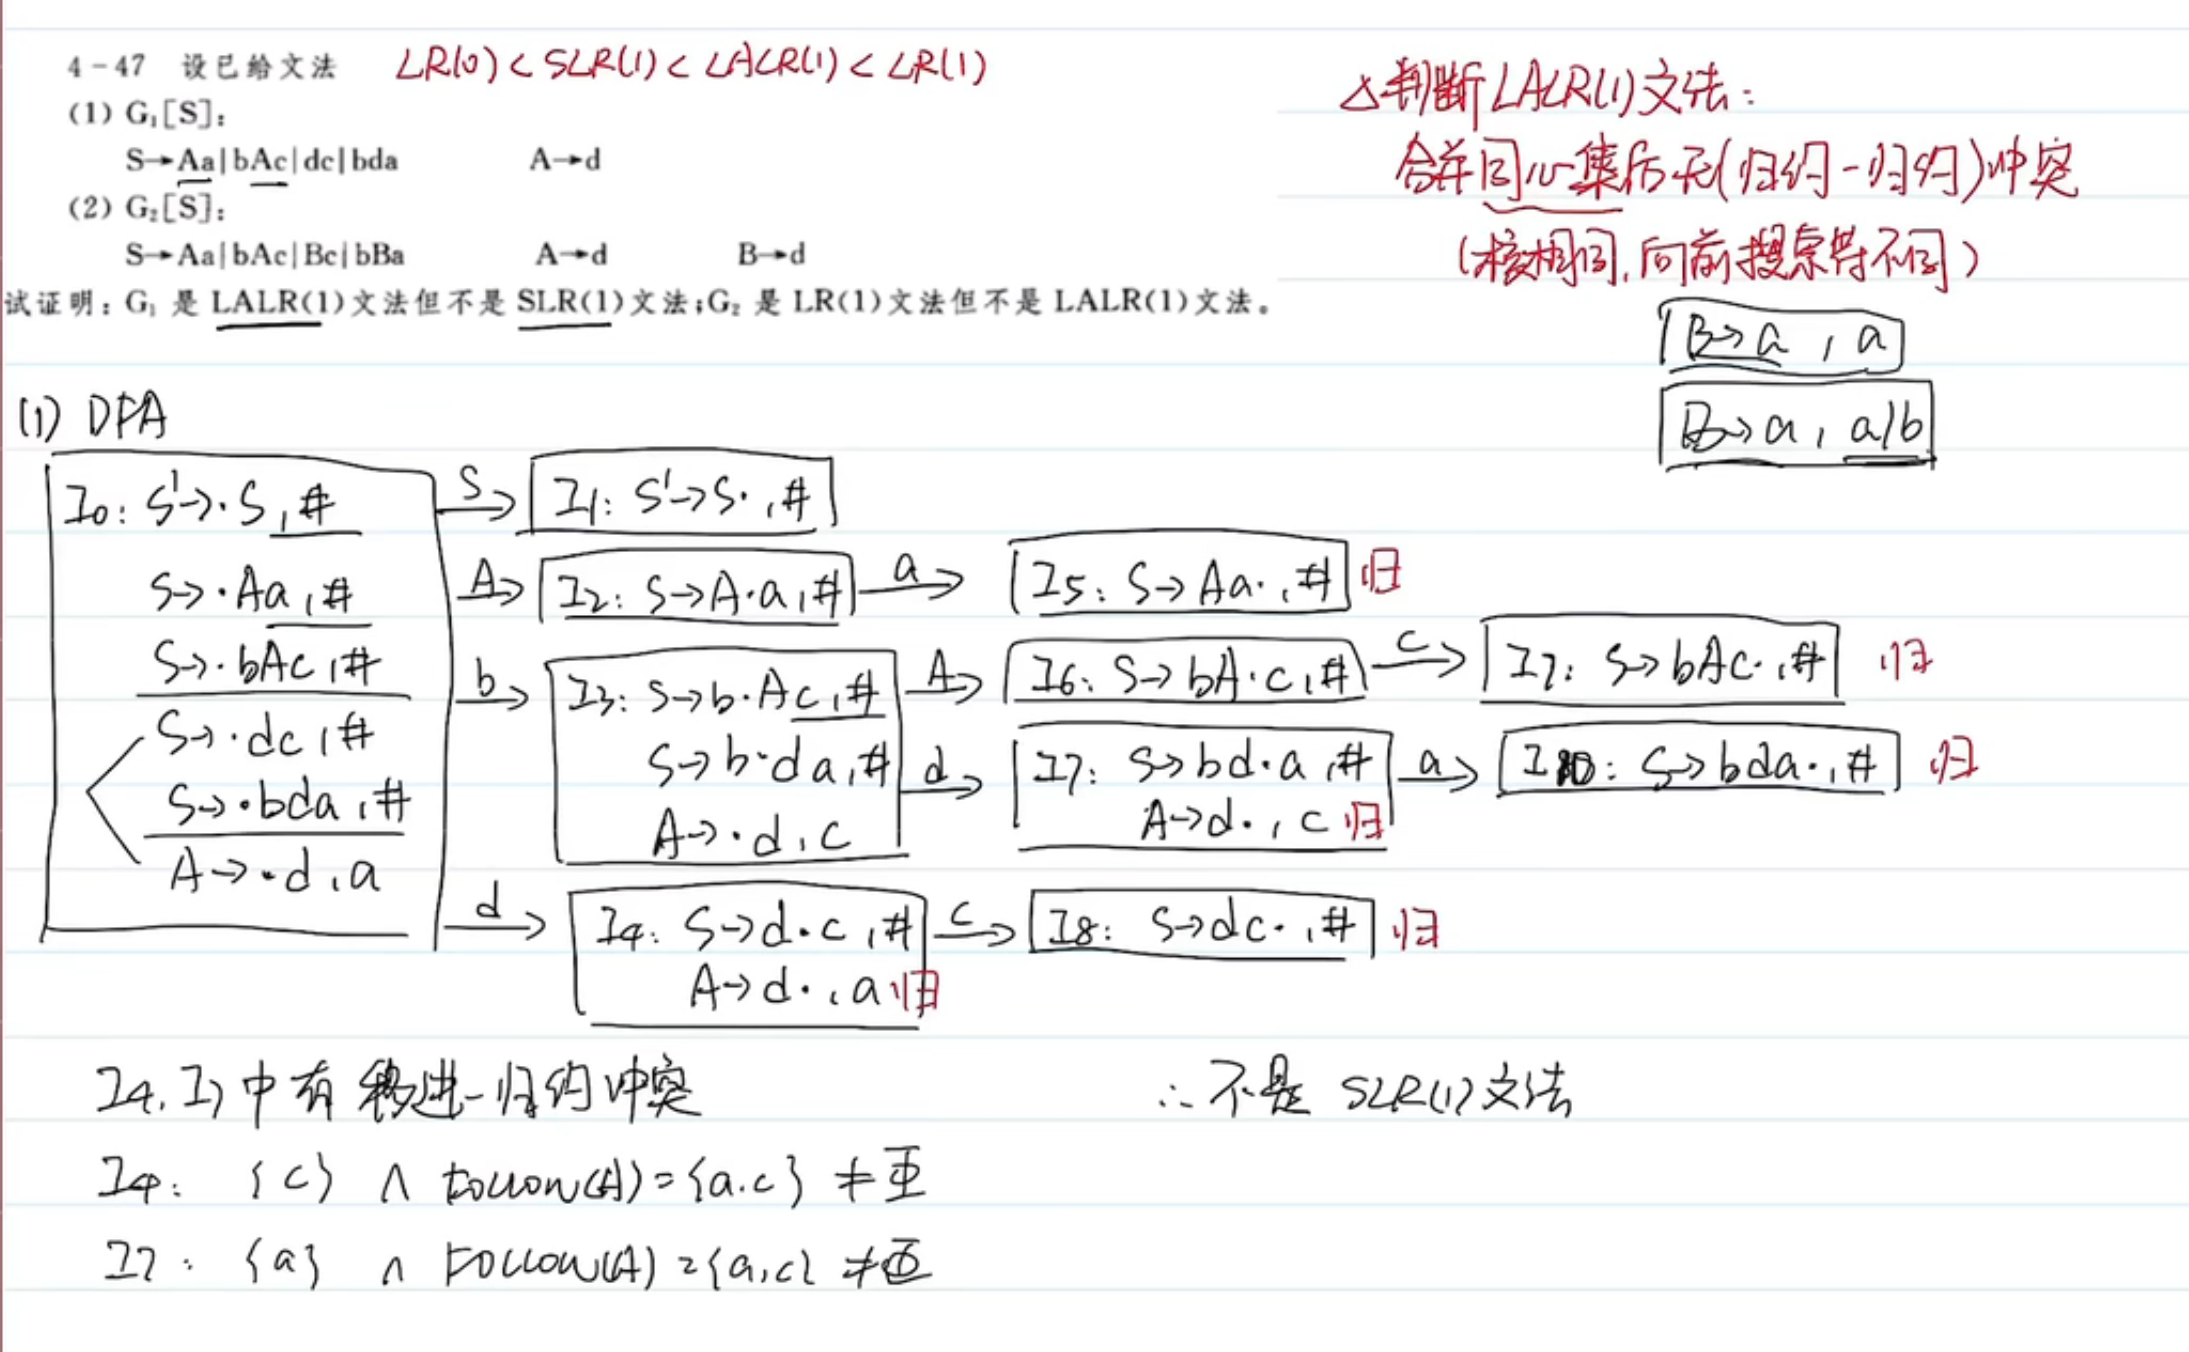 4-47 设已给文法 LR(0) < SLR(1) < LALR(1) < LR(1)
(1) G₁[S]:
S→Aa|bAc|dc|bda A→d
(2) G₂[S]:
S→Aa|bAc|Bc|bBa A→d B→d
试证明：G₁ 是 LALR(1)文法但不是 SLR(1)文法；G₂ 是 LR(1)文法但不是 LALR(1)文法。
△判断LALR(1)文法：
合并同心集后无(归约-归约)冲突
(核相同,向前搜索符不同)
B→a , a
B→a , a/b
(1) DFA
I0: S'→·S,#
S→·Aa,#
S→·bAc,#
S→·dc,#
S→·bda,#
A→·d,a
S
I1: S'→S·,#
A
I2: S→A·a,#
a
I5: S→Aa·,# 归
b
I3: S→b·Ac,#
S→b·da,#
A→·d,c
A
I6: S→bA·c,#
c
I7: S→bAc·,# 归
d
I7: S→bd·a,#
A→d·,c 归
a
I10: S→bda·,# 归
d
I4: S→d·c,#
A→d·,a 归
c
I8: S→dc·,# 归
I4,I7中有移进-归约冲突 ∴不是 SLR(1)文法
I4: {c} ∧ FOLLOW(A)={a.c} ≠
I7: {a} ∧ FOLLOW(A)={a,c} ≠